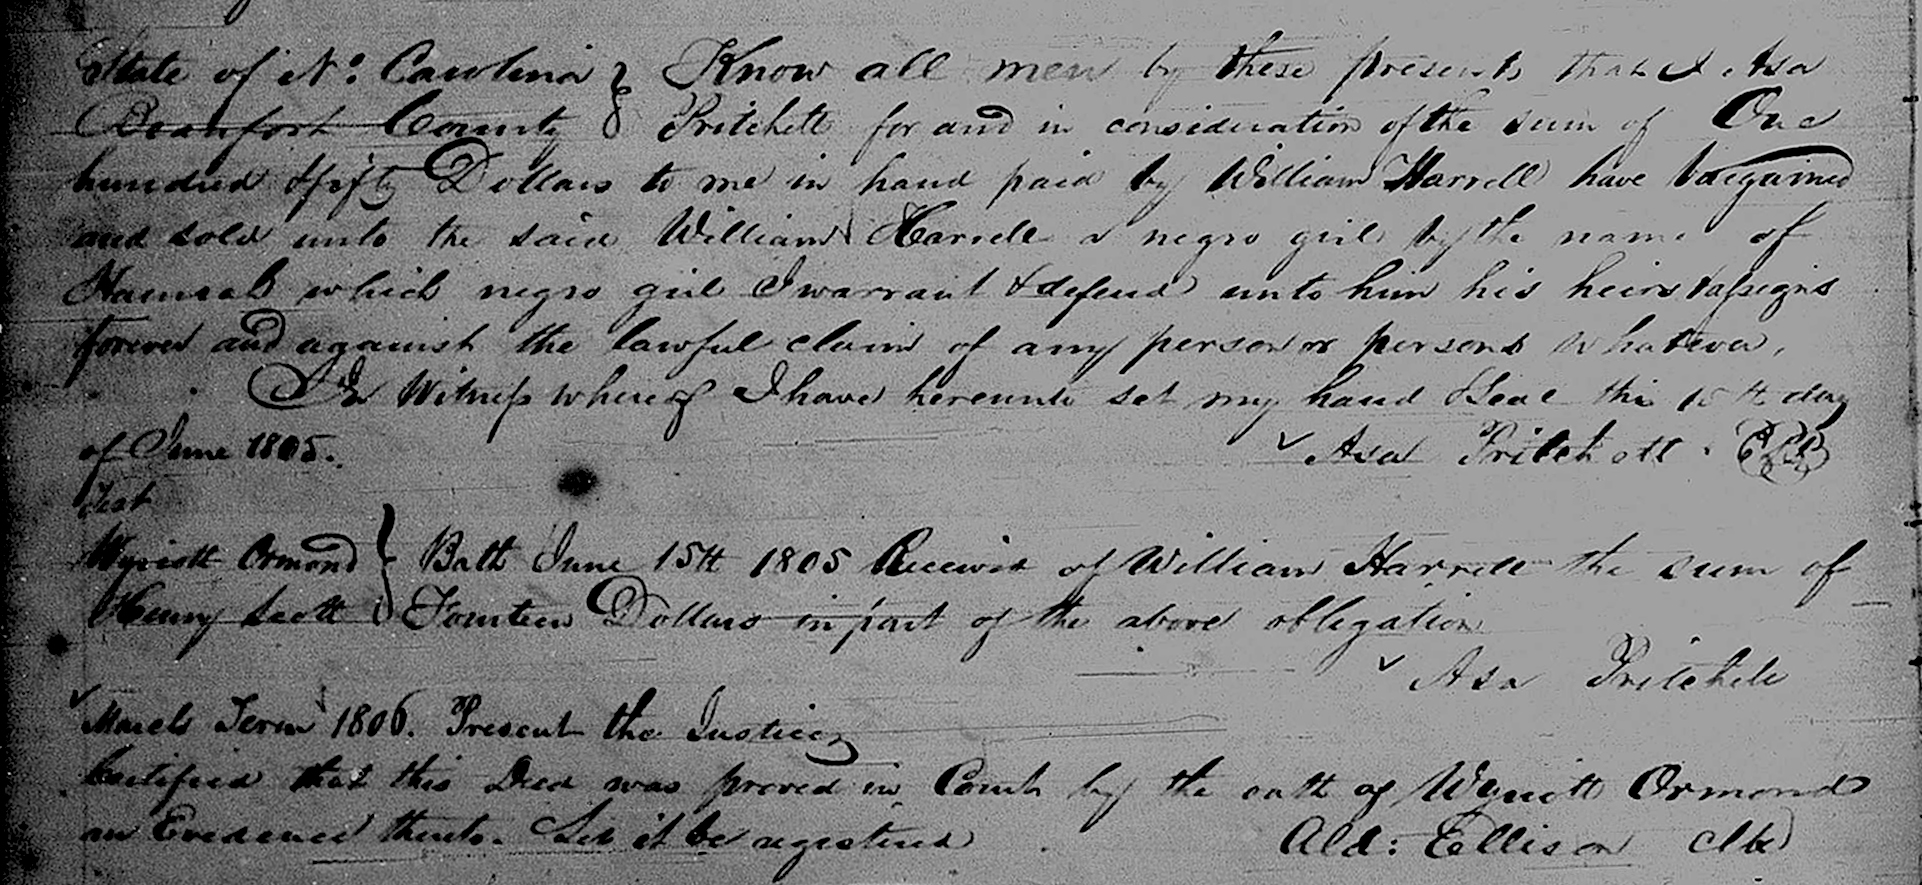 State of No. Carolina } Know all men by these presents that I Asa
Beaufort County } Pritchett for and in consideration of the sum of One
hundred & fifty Dollars to me in hand paid by William Harrell have bargained
and sold unto the said William Harrell a negro girl by the name of
Hannah which negro girl I warrant & defend unto him his heirs & assigns
forever and against the lawful claim of any person or persons whatever.
In Witness whereof I have hereunto set my hand & Seal this 15th day
of June 1805.
Asa Pritchett
Test
Wyriott Ormond } Bath June 15th 1805 Received of William Harrell the sum of
Henry Scott } Fourteen Dollars in part of the above obligation
Asa Pritchett
March Term 1806. Present the Justices
Certified that this Deed was proved in Court by the oath of Wyriott Ormond
an Evidence thereto. Let it be registered
Ald: Ellison Clk